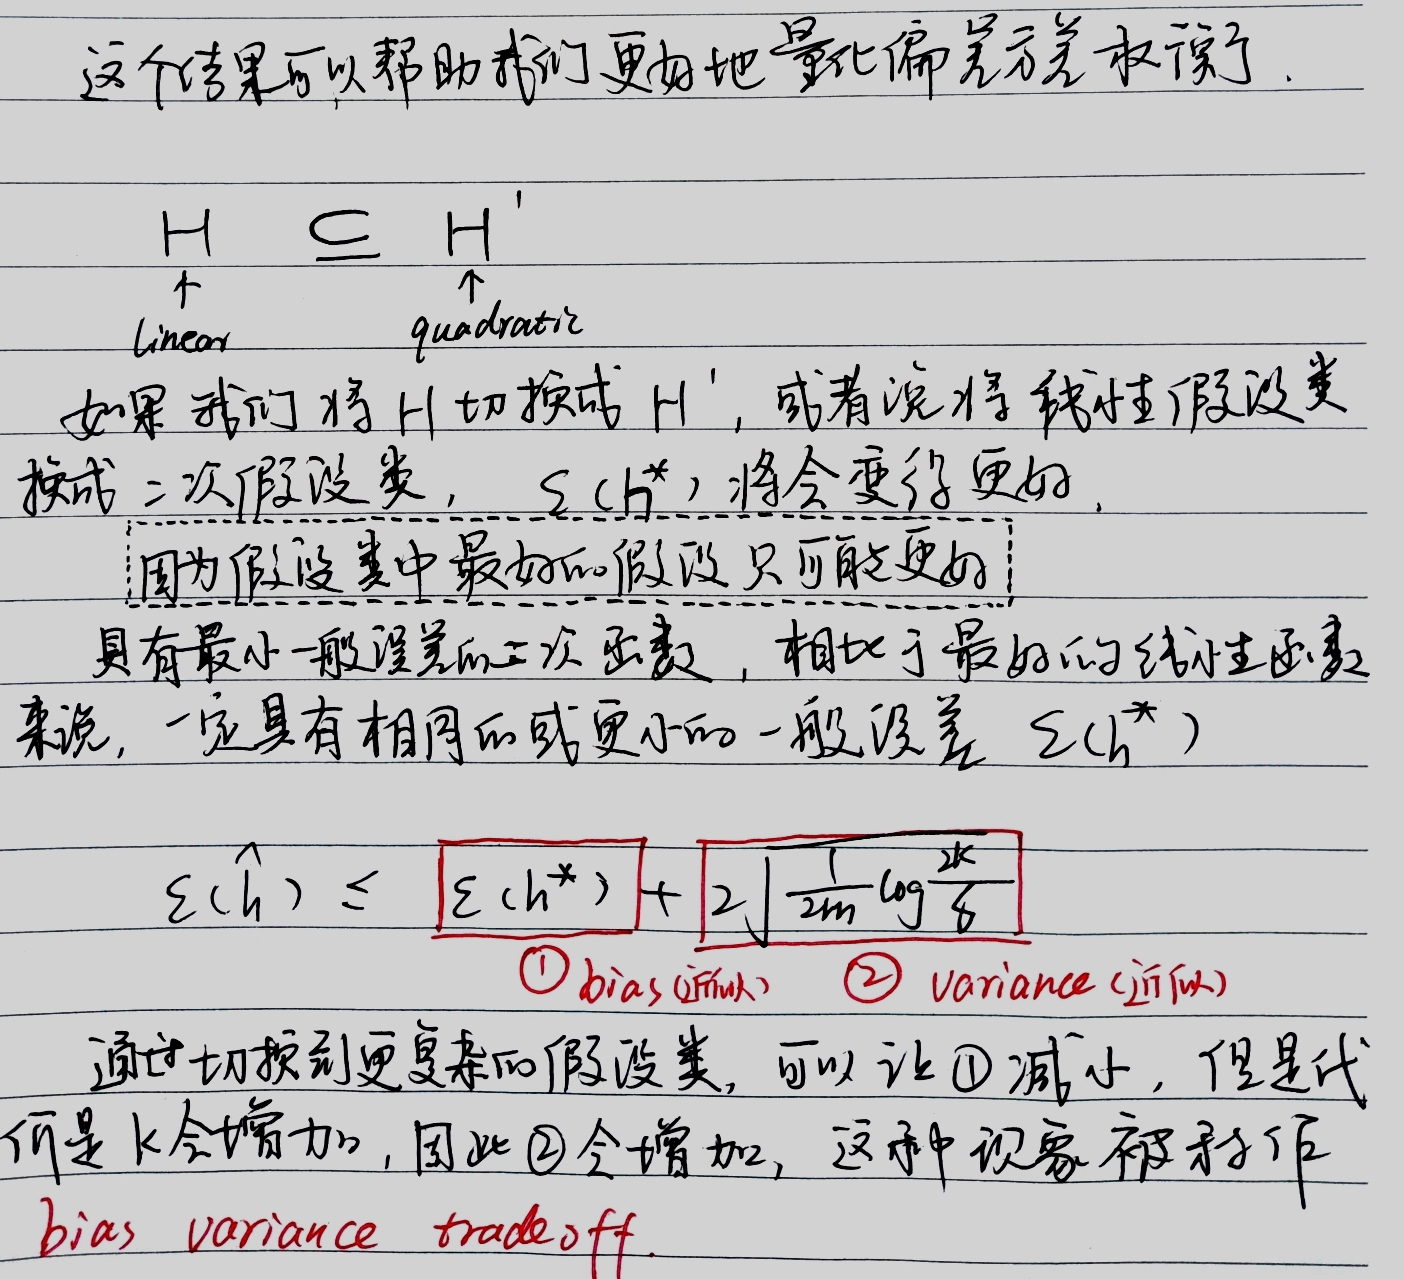 这个结果可以帮助我们更好地量化偏差方差权衡.
H ⊆ H'
↑ ↑
linear quadratic
如果我们将 H 切换成 H', 或者说将线性假设类
换成二次假设类, ε(h*) 将会变得更好.
因为假设类中最好的假设只可能更好
具有最小一般误差的二次函数, 相比于最好的线性函数
来说, 一定具有相同的或更小的一般误差 ε(h*)
ε(ĥ) ≤ ε(h*) + 2√(1/2m log 2k/δ)
① bias (近似) ② variance (近似)
通过切换到更复杂的假设类, 可以让 ① 减小, 但是代
价是 k 会增加, 因此 ② 会增加, 这种现象被称作
bias variance tradeoff.